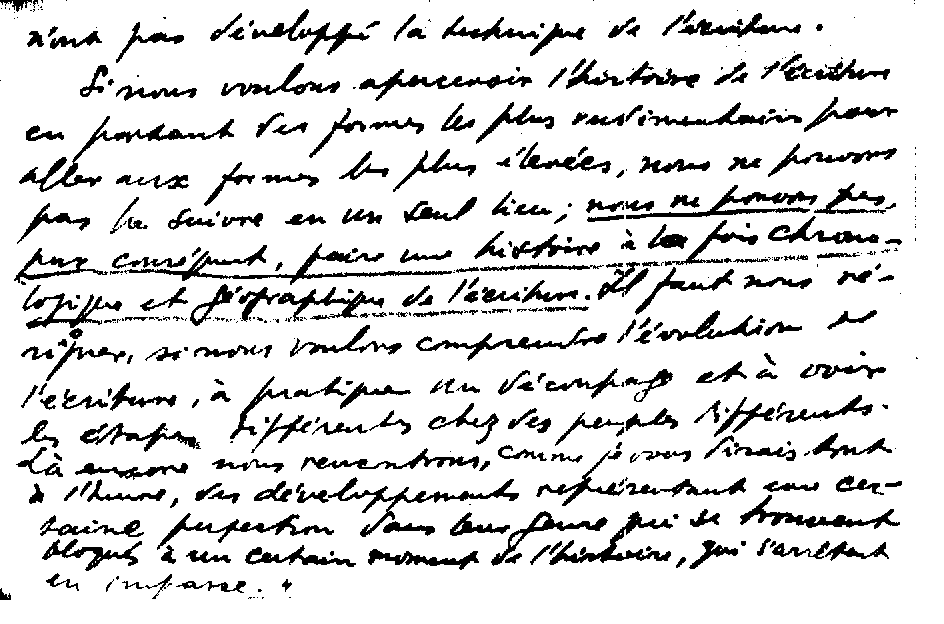 n'ont pas développé la technique de l'écriture.
Si nous voulons apercevoir l'histoire de l'écriture
en partant des formes les plus rudimentaires pour
aller aux formes les plus élevées, nous ne pouvons
pas la suivre en un seul lieu ; nous ne pouvons pas,
par conséquent, faire une histoire à la fois chrono-
logique et géographique de l'écriture. Il faut nous ré-
signer, si nous voulons comprendre l'évolution de
l'écriture, à pratiquer un découpage et à voir
les étapes différentes chez des peuples différents.
Là encore nous rencontrons, comme je vous dirais tout
à l'heure, des développements représentant une cer-
taine perfection dans leur genre qui se trouvent
bloqués à un certain moment de l'histoire, qui s'arrêtent
en impasse. "